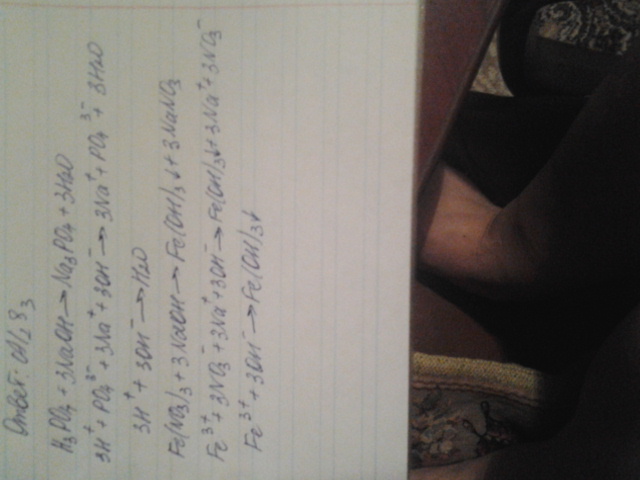 Ответ:
H₃PO₄ + 3NaOH → Na₃PO₄ + 3H₂O
3H⁺ + PO₄³⁻ + 3Na⁺ + 3OH⁻ → 3Na⁺ + PO₄³⁻ + 3H₂O
3H⁺ + 3OH⁻ → H₂O
Fe(NO₃)₃ + 3NaOH → Fe(OH)₃↓ + 3NaNO₃
Fe³⁺ + 3NO₃⁻ + 3Na⁺ + 3OH⁻ → Fe(OH)₃↓ + 3Na⁺ + 3NO₃⁻
Fe³⁺ + 3OH⁻ → Fe(OH)₃↓